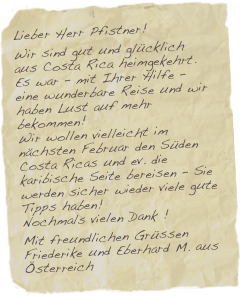 Lieber Herr Pfistner!
Wir sind gut und glücklich
aus Costa Rica heimgekehrt.
Es war - mit Ihrer Hilfe -
eine wunderbare Reise und wir
haben Lust auf mehr
bekommen!
Wir wollen vielleicht im
nächsten Februar den Süden
Costa Ricas und ev. die
karibische Seite bereisen - Sie
werden sicher wieder viele gute
Tipps haben!
Nochmals vielen Dank !
Mit freundlichen Grüssen
Friederike und Eberhard M. aus
Österreich